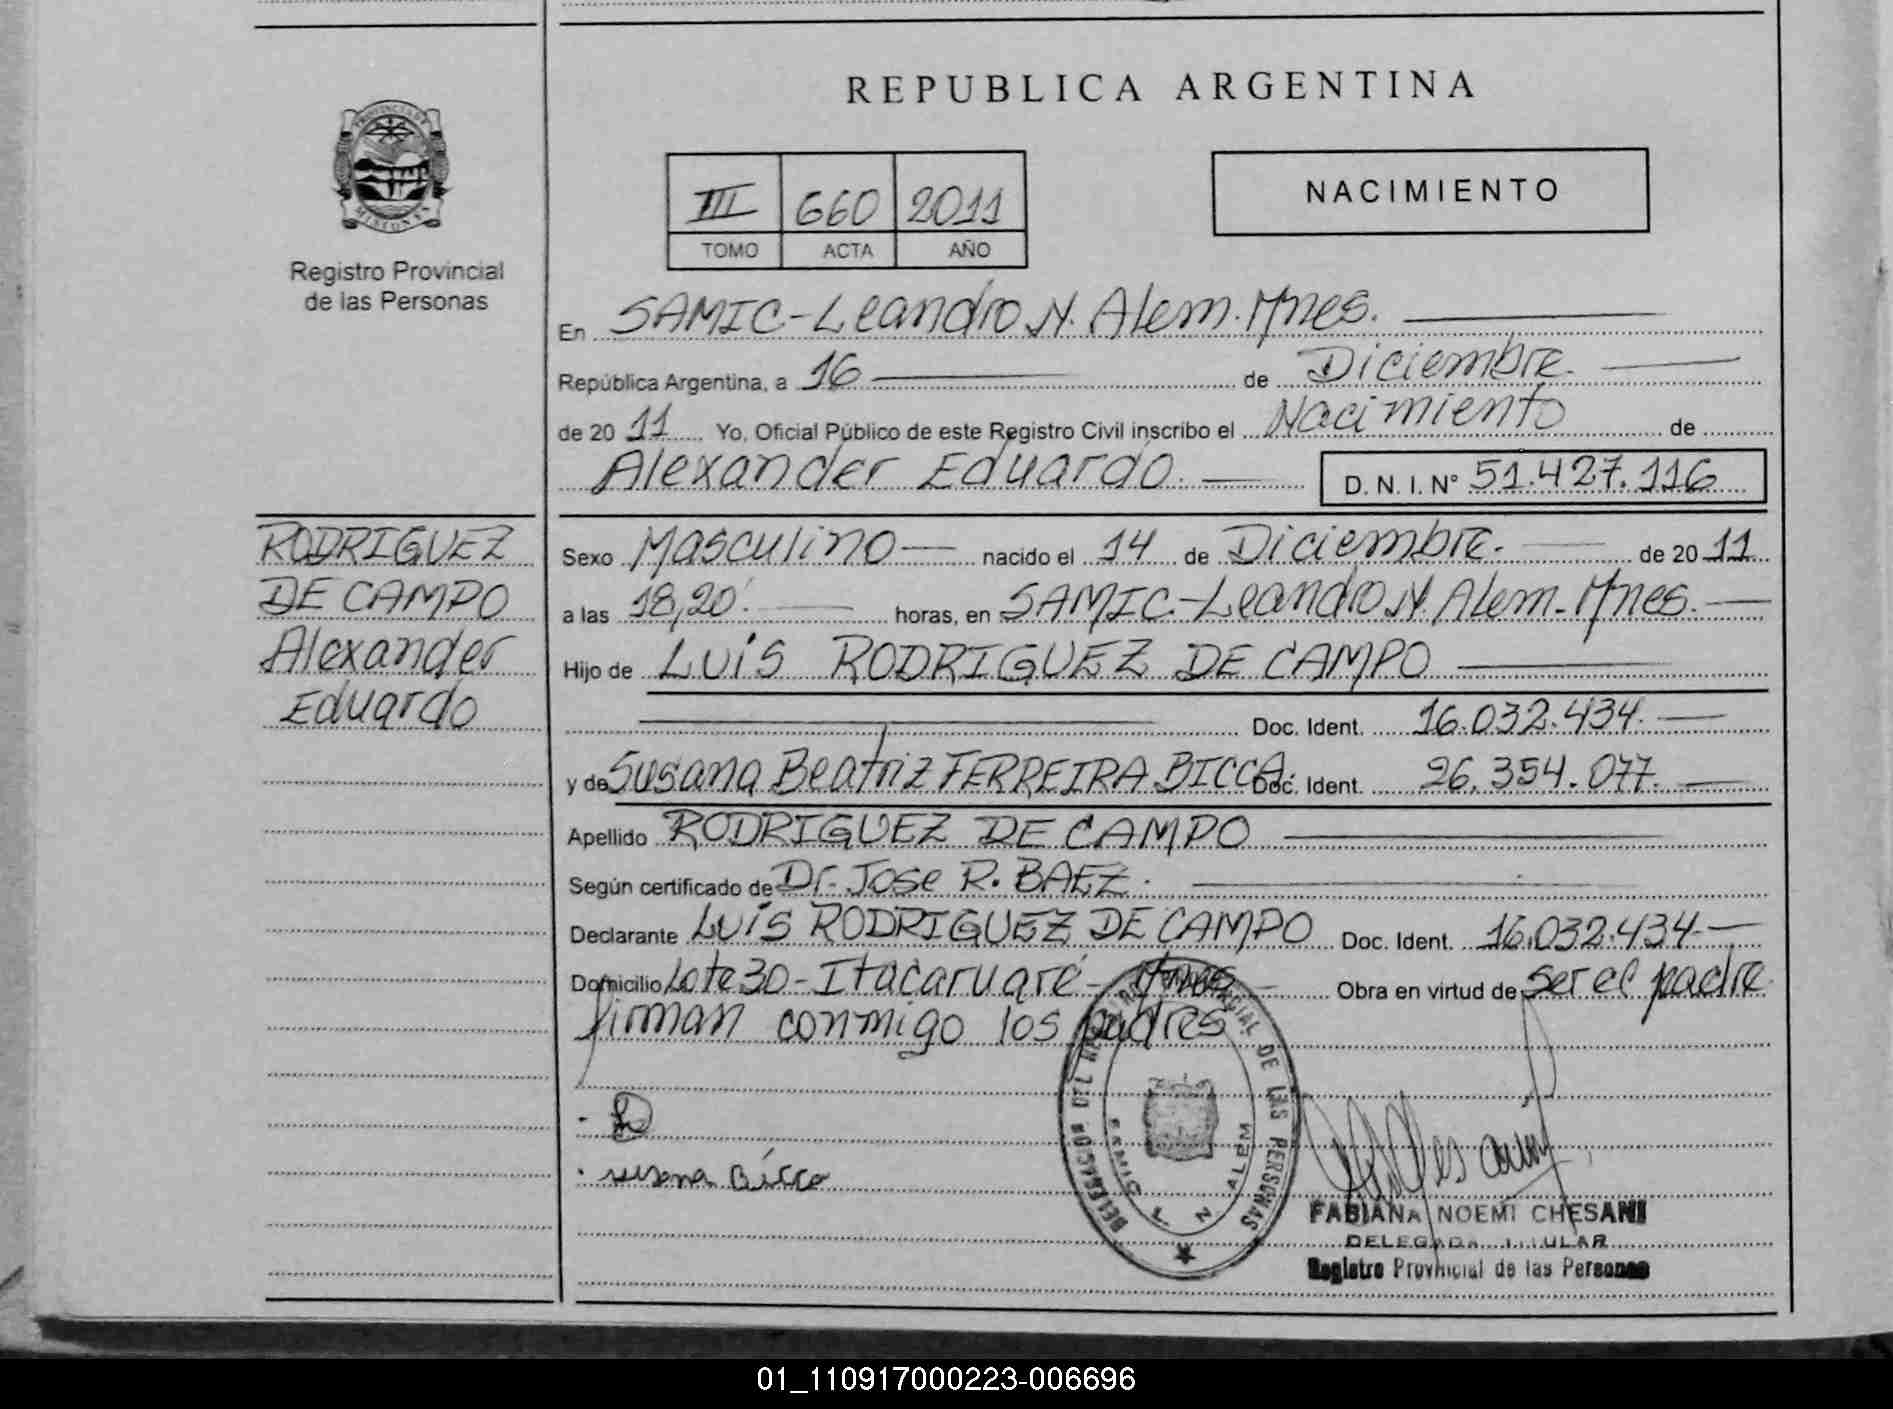 REPUBLICA ARGENTINA
PROVINCIA DE
MISIONES
Registro Provincial
de las Personas
III 660 2011
TOMO ACTA AÑO
NACIMIENTO
En SAMIC-Leandro N. Alem. Mnes.
República Argentina, a 16 de Diciembre.
de 20 11 Yo, Oficial Público de este Registro Civil inscribo el Nacimiento de
Alexander Eduardo. D. N. I. N° 51.427.116
RODRIGUEZ
DE CAMPO
Alexander
Eduardo
Sexo Masculino nacido el 14 de Diciembre. de 20 11
a las 18,20'. horas, en SAMIC.-Leandro N. Alem.-Mnes.
Hijo de LUIS RODRIGUEZ DE CAMPO
Doc. Ident. 16.032.434.
y de Susana Beatriz FERREIRA BICCA. Doc. Ident. 26.354.077.
Apellido RODRIGUEZ DE CAMPO
Según certificado de Dr. Jose R. BAEZ.
Declarante LUIS RODRIGUEZ DE CAMPO Doc. Ident. 16.032.434.
Domicilio Lote 30 - Itacaruaré - Mnes Obra en virtud de ser el padre
firman conmigo los padres
susana Bicca
DELEGACION DEL REGISTRO PROVINCIAL DE LAS PERSONAS
SAMIC L. N. ALEM
FABIANA NOEMI CHESANI
DELEGADA TITULAR
Registro Provincial de las Personas
01_110917000223-006696